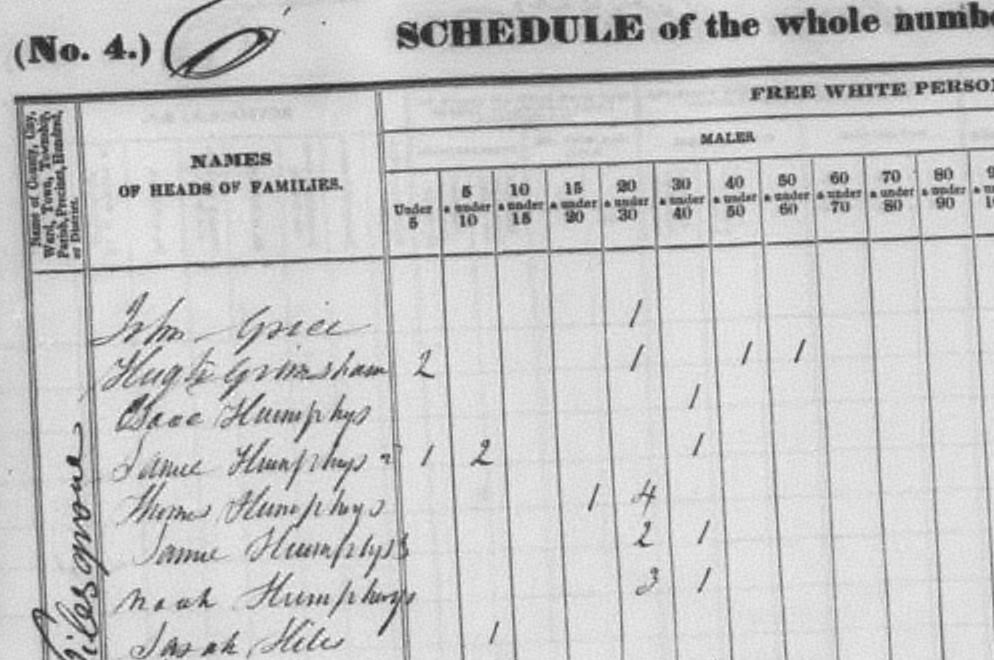 (No. 4.) SCHEDULE of the whole numb
FREE WHITE PERSO
MALES
Name of County, City, Ward, Town, Township, Parish, Precinct, Hundred, or District.
NAMES
OF HEADS OF FAMILIES.
Under 5
5 & under 10
10 & under 15
15 & under 20
20 & under 30
30 & under 40
40 & under 50
50 & under 60
60 & under 70
70 & under 80
80 & under 90
John Grice 1
Hugh Grimsham 2 1 1 1
Isaac Humphys 1
Humphys 2 1 2 1
Thomas Humphys 1 4
Humphys 3 2 1
Noah Humphrys 3 1
Sarah Hiles 1
Pilesgrove